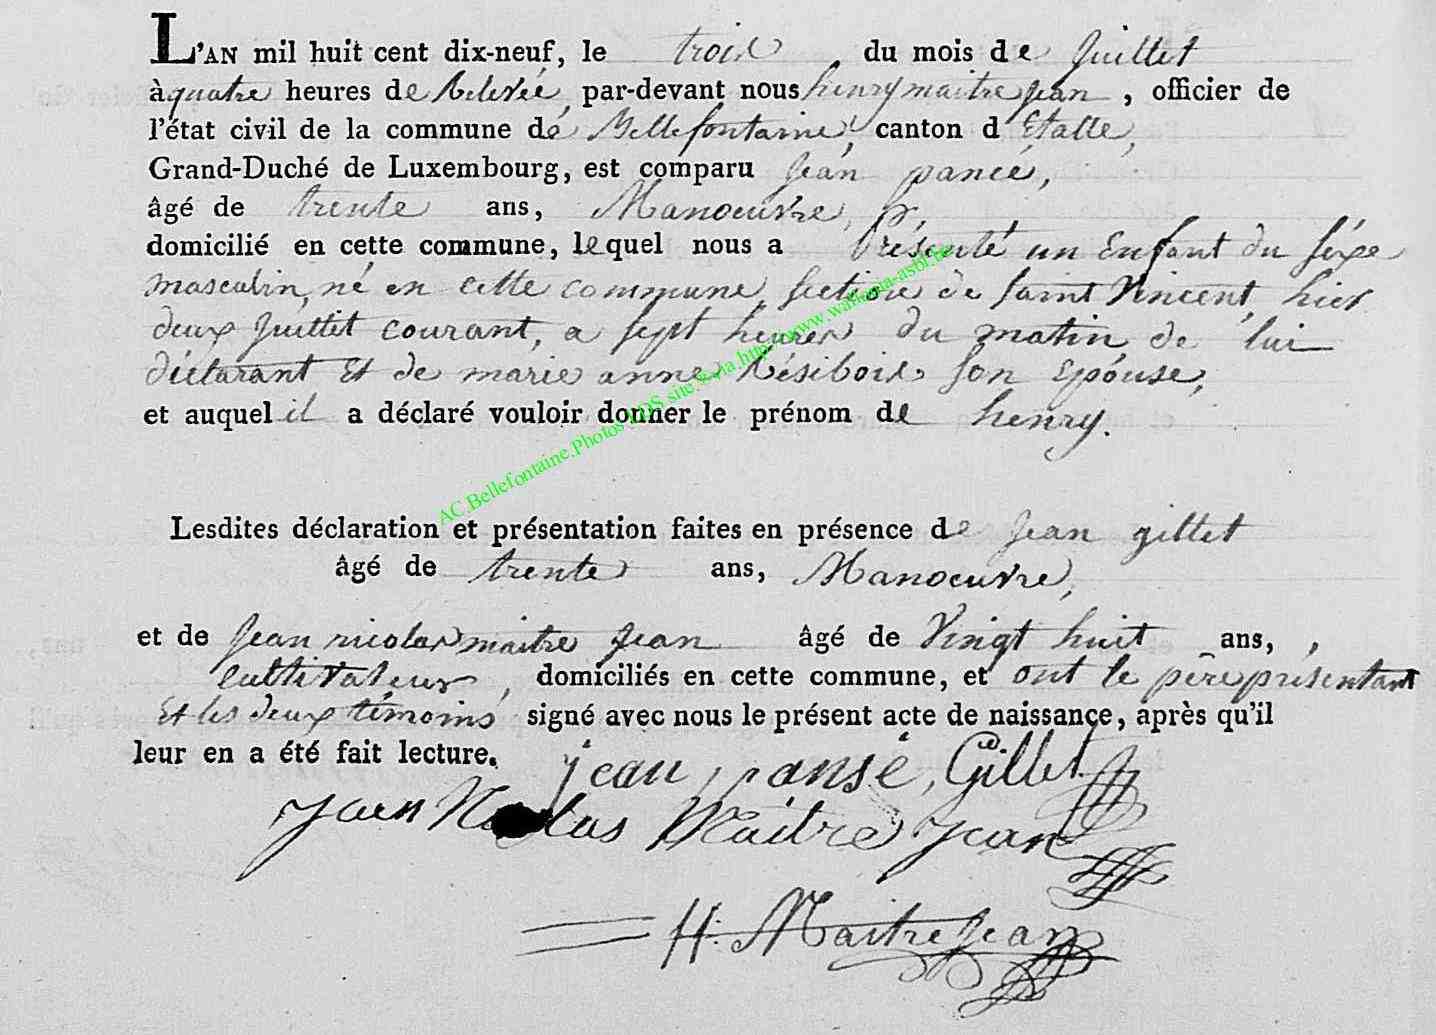 L'AN mil huit cent dix-neuf, le trois du mois de Juillet
à quatre heures de Relevée, par-devant nous henry maitre jean, officier de
l'état civil de la commune de Bellefontaine, canton d Etalle,
Grand-Duché de Luxembourg, est comparu jean pancé,
âgé de trente ans, Manoeuvre,
domicilié en cette commune, lequel nous a présenté un Enfant du sèxe
masculin, né en cette commune, section de saint Vincent, hier
deux Juillet courant, a sept heures du matin de lui
déclarant Et de marie anne Résibois son Epouse,
et auquel il a déclaré vouloir donner le prénom de henry.
AC.Bellefontaine.Photos site http://www.wallonia-asbl.be
Lesdites déclaration et présentation faites en présence de jean gillet
âgé de trente ans, Manoeuvre,
et de jean nicolas maitre jean âgé de Vingt huit ans, ,
cultivateur, domiciliés en cette commune, et ont le père présentant
Et les deux témoins signé avec nous le présent acte de naissance, après qu'il
leur en a été fait lecture. jean pansé, Gillet
Jean Nicolas Maitre Jean
H. Maitre Jean